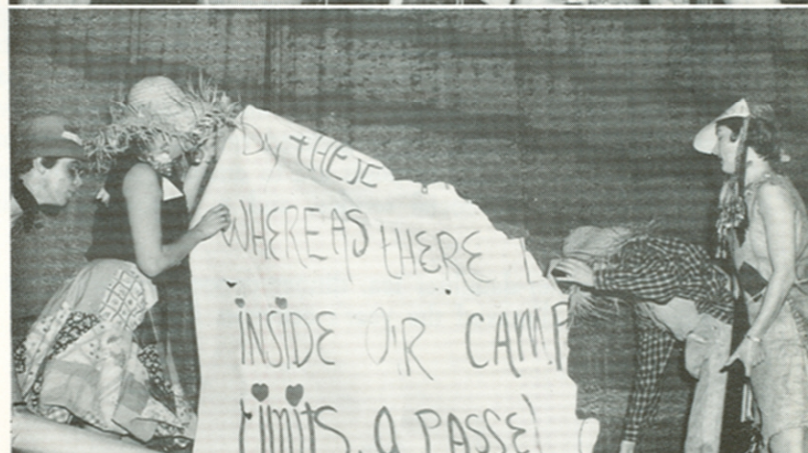 By THESE
WHEREAS THERE
INSIDE OUR CAMP
LIMITS, A PASSEL